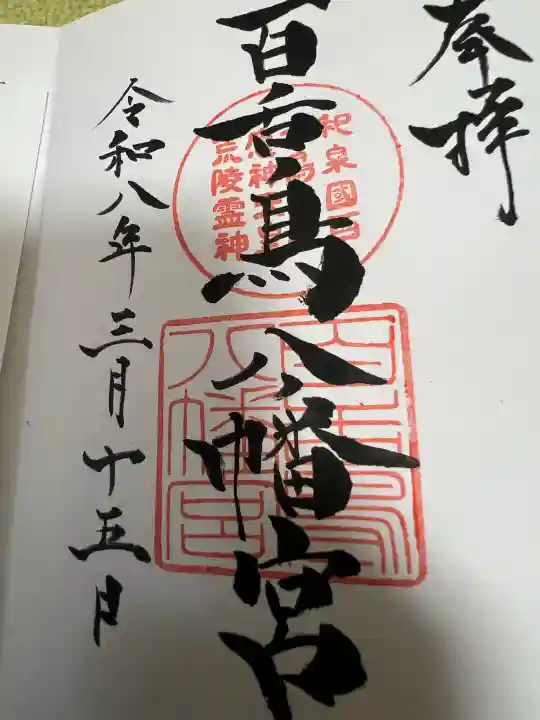 奉拝
百舌鳥八幡宮
令和八年三月十五日
和泉國百
荒陵霊神
百舌鳥
八幡宮